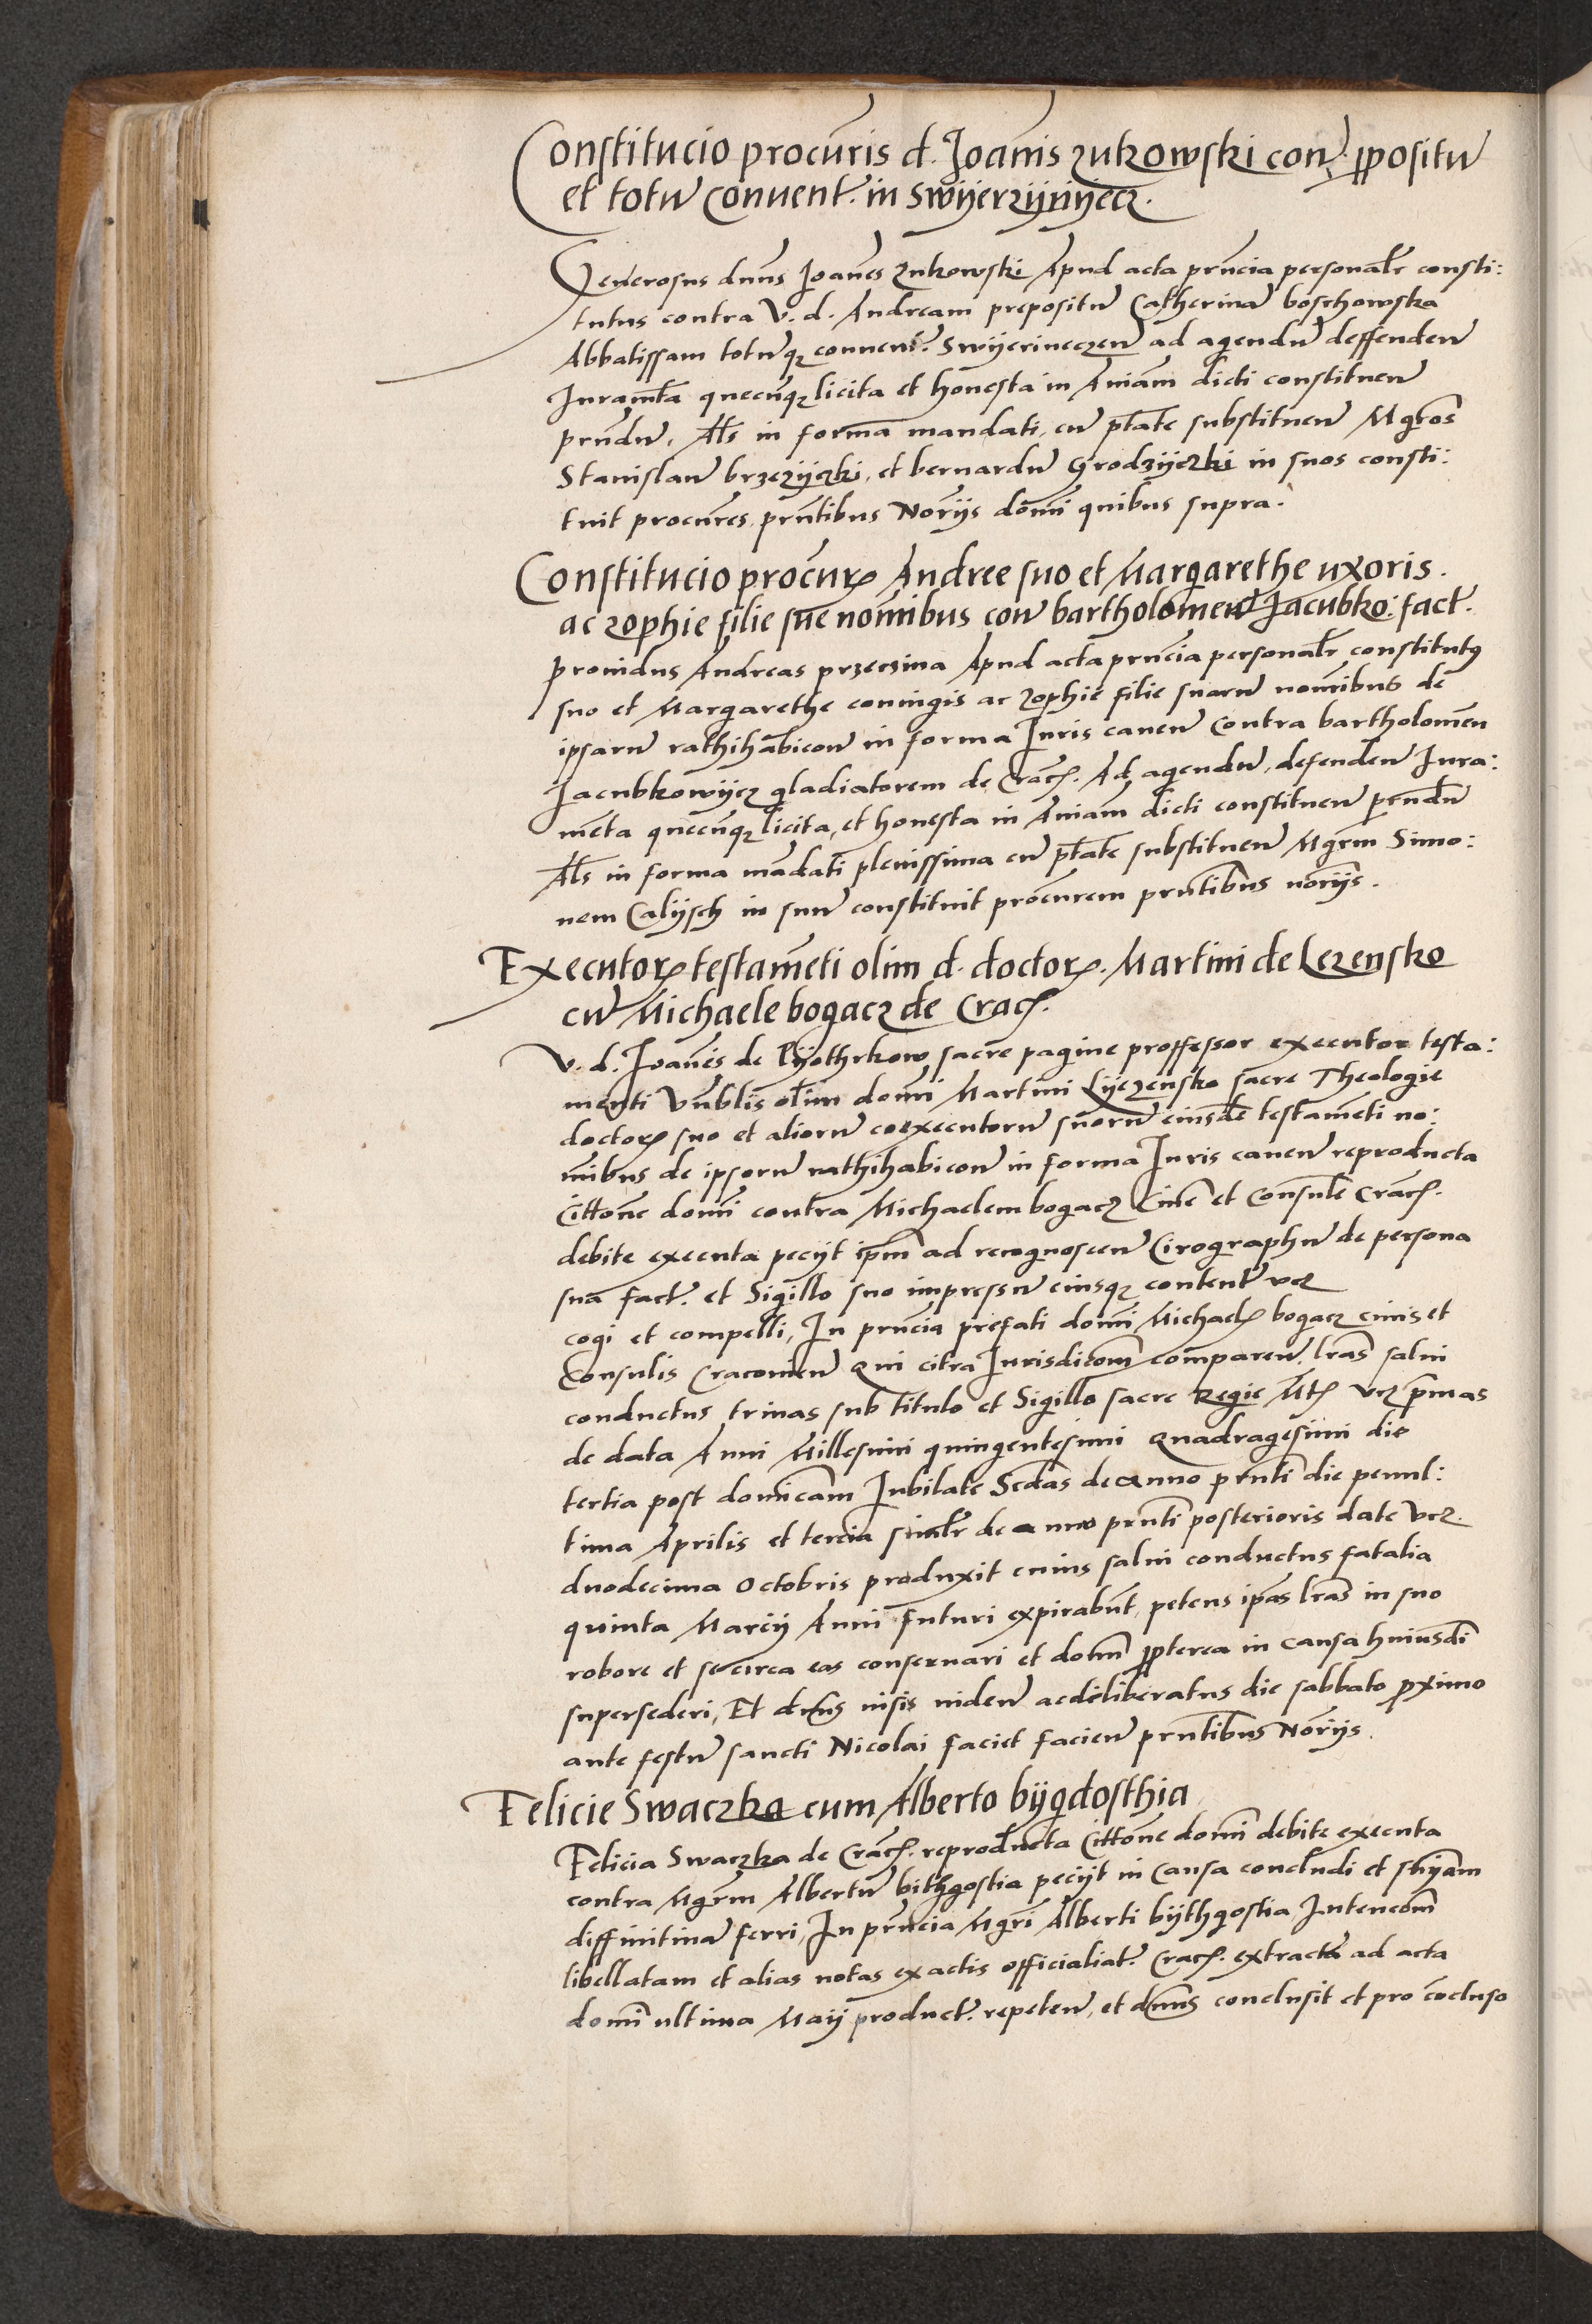 Constitucio procuris d. Joannis zukowski con. ppositu
et totu Convent. in Swyerzynyecz.
Generosus dnus Joanes zukowski Apud acta prncia personalr consti:
tutus contra V. d. Andream prepositu Catherina boschowska
Abbatissam totuqz conven. Swyerineczen ad agendu deffenden
Juramta quecuqz licita et honesta in Aniam dicti constituen
prndu. Als in forma mandati, cu ptate substituen Mgros
Stanislau brzezyczki, et bernardu Grodzyczki in suos consti:
tuit procures, prntibus Noryis domi quibus supra.
Constitucio procur Andree suo et Margarethe uxoris.
ac zophie filie sue nomibus con bartholomeu Jacubko: fact.
providus Andreas przeczina Apud acta prncia personalr constitutus
suo et Margarethe coniugis ac zophie filie suaru nomibus de
ipsaru rathihabicon in forma Juris caven contra bartholomeu
Jacubkowycz gladiatorem de Crac. Ad agendu, defenden Jura:
meta quecuqz licita, et honesta in Aniam dicti constituen prndu
Als in forma madati plenissima cu ptate substituen Mgrm Simo:
nem Calysch in suu constituit procurem prntibus noryis.
Executor testameti olim d. doctor. Martini de Lezensko
cu Michaele bogacz de Crac.
V. d. Joanes de Pyothrkow sacre pagine proffessor executor testa:
menti Vnblis olim domi Martini Lyezensko sacre Theologie
doctor suo et alioru coexecutoru suoru eiusde testameti no:
mibus de ipsoru rathihabicon in forma Juris caven reproducta
Cittone domi contra Michaelem bogacz Cive et Consule Crac.
debite executa peciyt ipm ad recognoscen Cirographu de persona
sua fact. et Sigillo suo impressu eiusqz content vcz
cogi et compelli, In prncia prefati domi Michael bogacz civis et
Consulis Cracovien Qui citra Jurisdicom comparen. lras salvi
conductus trinas sub titulo et Sigillo sacre Regie Mt vcz pmas
de data Anni Millesimi quingentesimi Quadragesimi die
tertia post domicam Jubilate Scdas de anno prnti die penul:
tima Aprilis et tercia similr de anno prnti posterioris date vcz.
duodecima Octobris produxit cuius salvi conductus fatalia
quinta Marcy Anni futuri expirabut, petens ipas lras in suo
robore et se circa eas conservari et domi ppterea in causa huiusdi
supersederi, Et dnus visis viden ac deliberatus die sabbato proximo
ante festu sancti Nicolai faciet facien prntibus Noryis.
Felicie Swaczka cum Alberto bygdosthia
Felicia Swaczka de Crac. reproducta Cittone domi debite executa
contra Mgrm Albertu bithgostia peciyt in Causa concludi et snyam
diffinitiva ferri, In prncia Mgri Alberti bythgostia Intencom
libellatam et alias notas ex actis officialiat. Crac. extracta ad acta
domi ultima May product. repeten, et dnus conclusit et pro cocluso